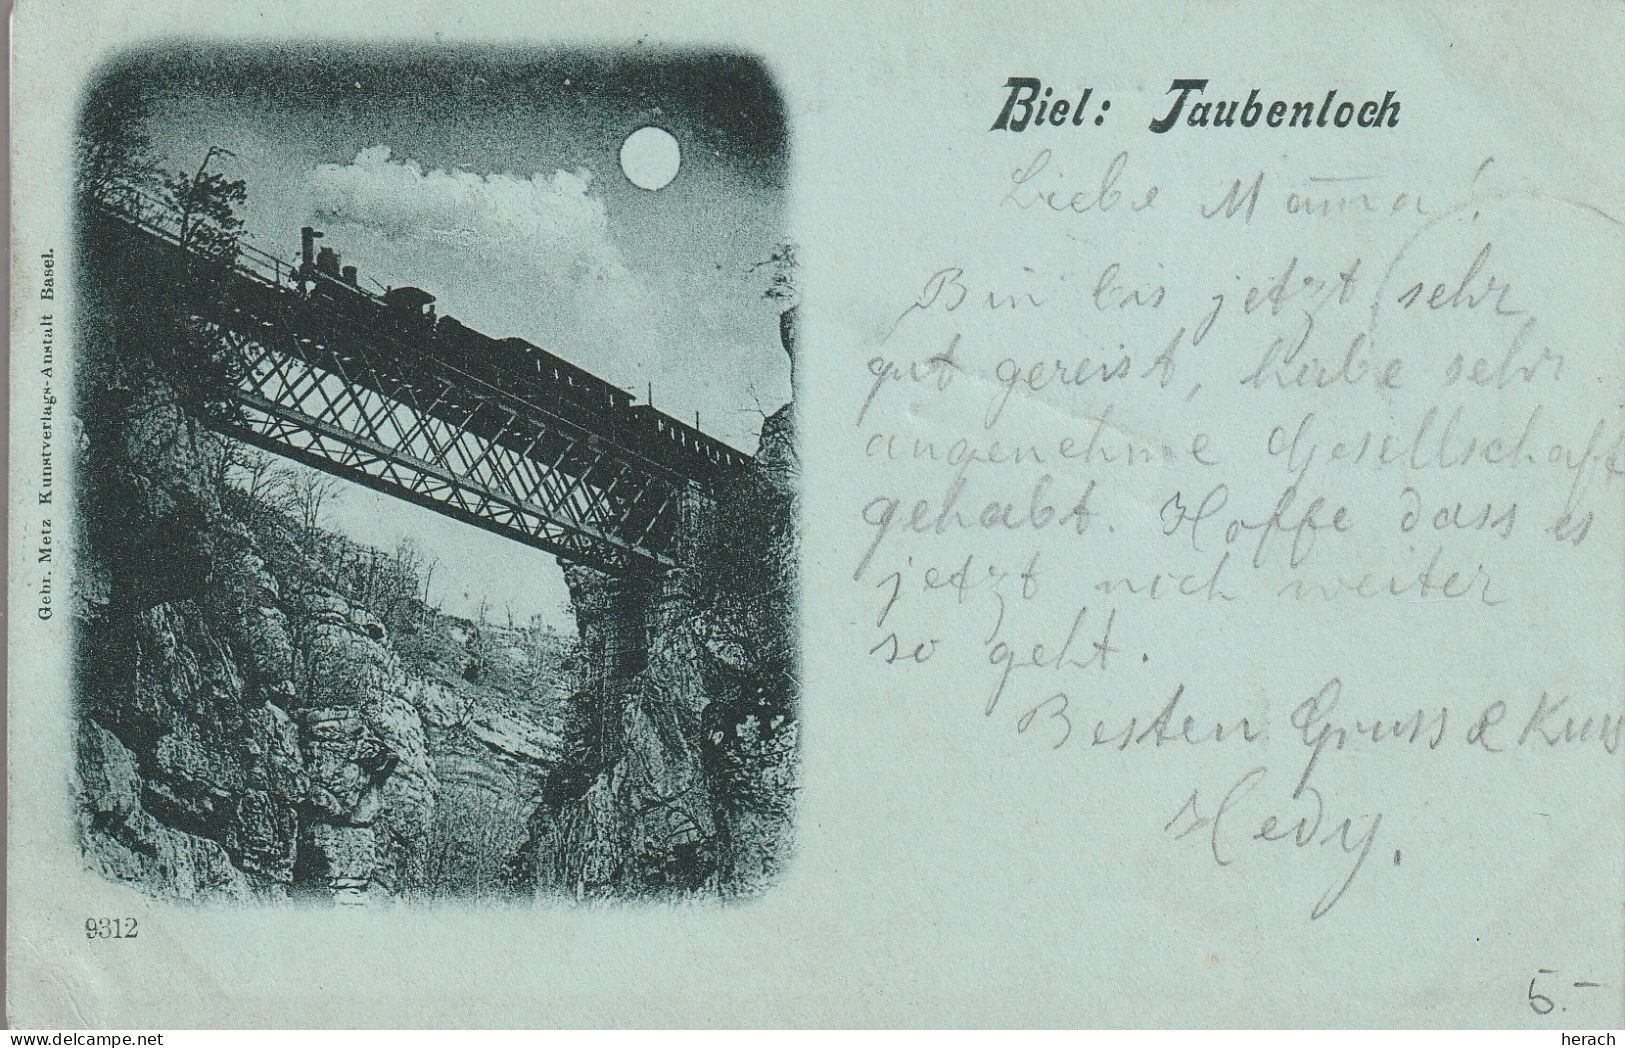 Biel: Taubenloch
Liebe Mama!
Bin bis jetzt sehr
gut gereist, habe sehr
angenehme Gesellschaft
gehabt. Hoffe dass es
jetzt noch weiter
so geht.
Besten Gruss & Kuss
Hedy.
Gebr. Metz Kunstverlags-Anstalt Basel.
9312
5.-
© delcampe.net
herach